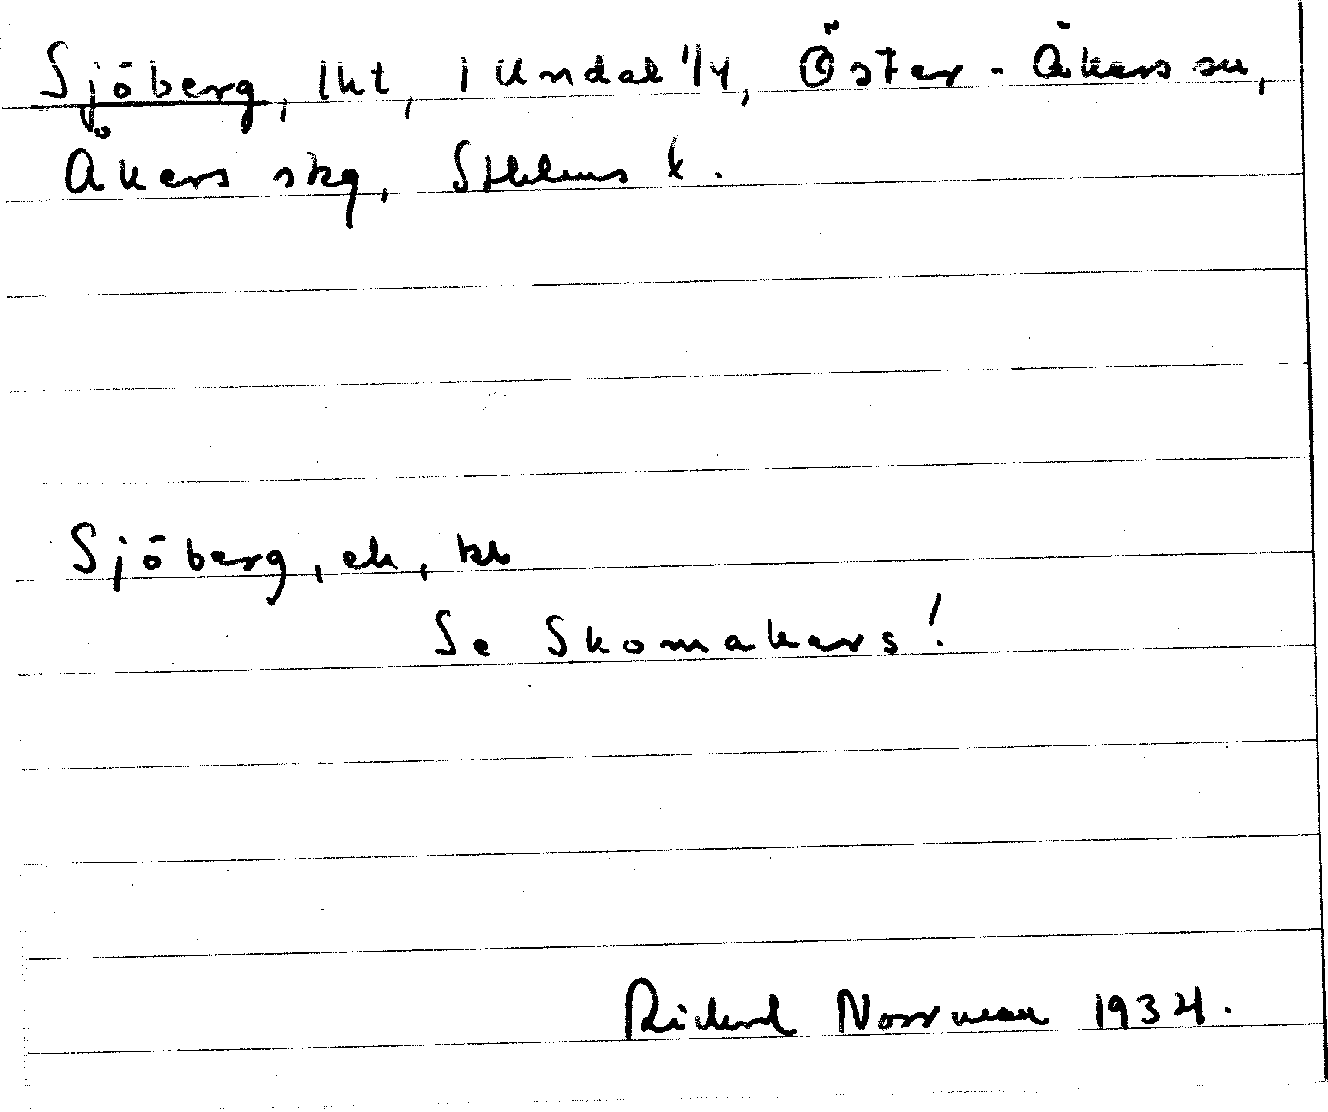 Sjöberg, lht, i Undal 1/4, Öster-Åkers sn,
Åkers skg, Sthlms l.
Sjöberg, ek, kb
Se Skomakars!
Rickard Norrman 1934.